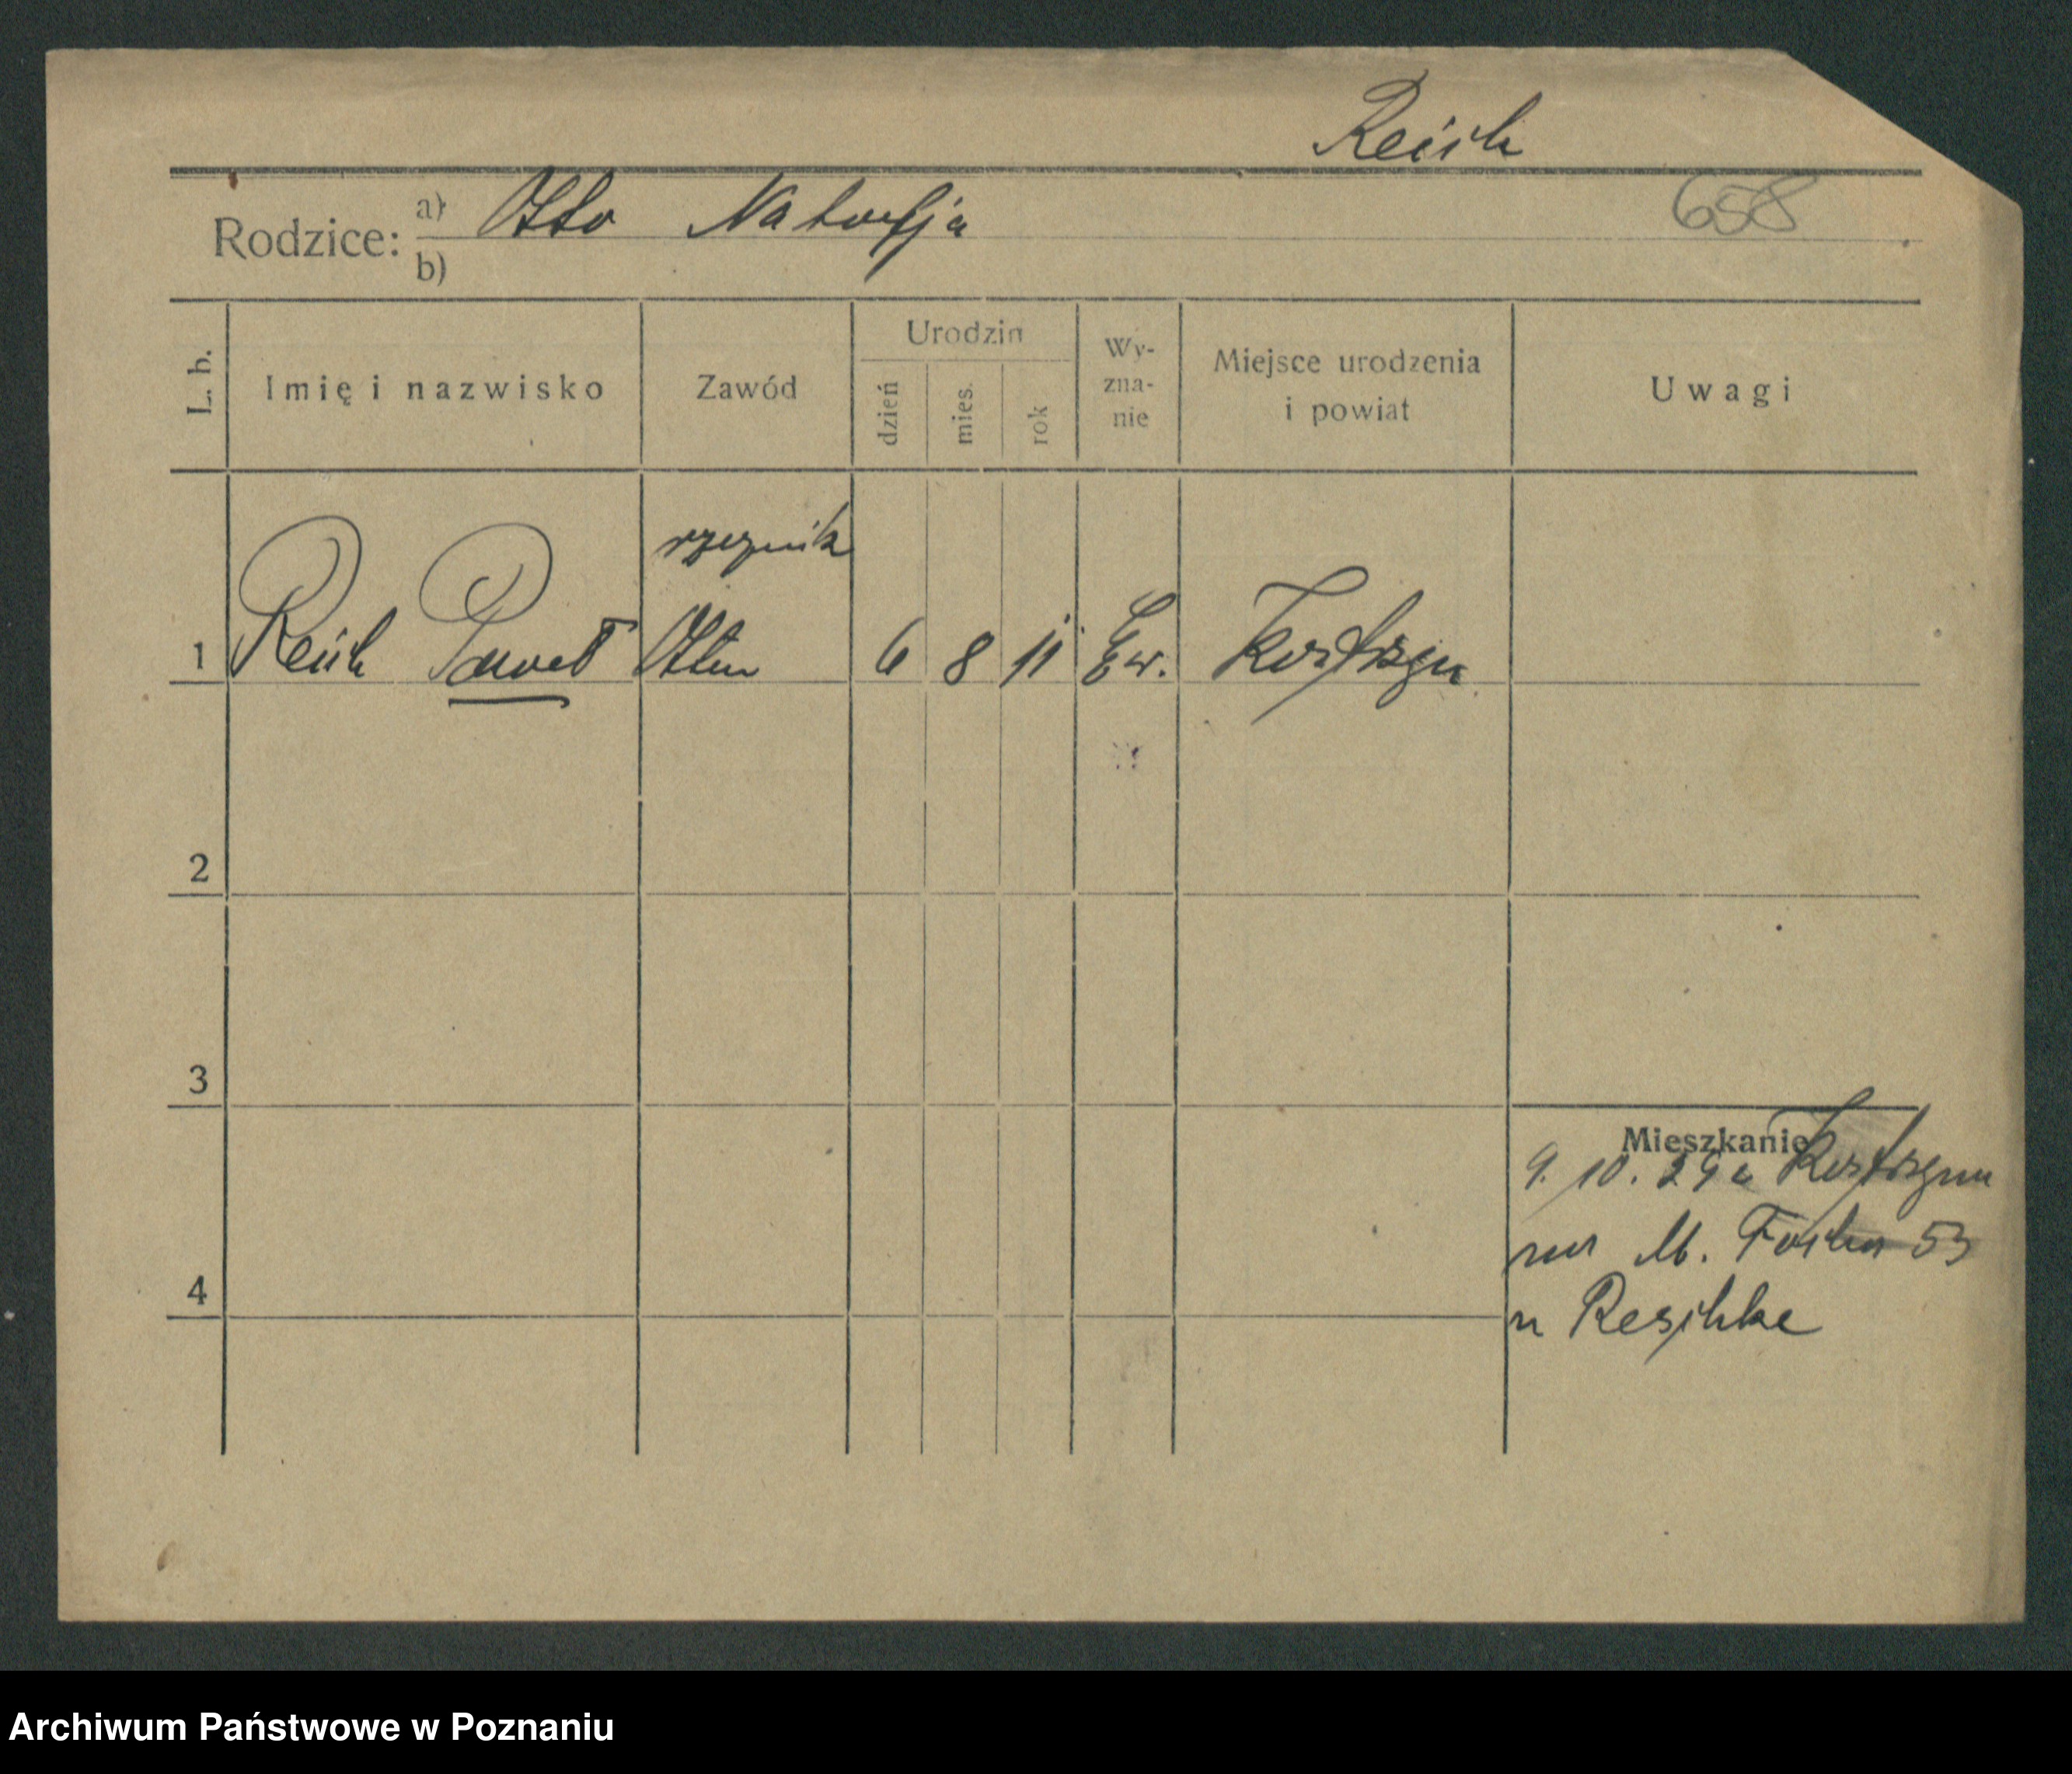 Reich
658
Rodzice: a) Otto Natalja
b)
L. b. Imię i nazwisko Zawód Urodzin dzień mies. rok Wy-zna-nie Miejsce urodzenia i powiat Uwagi
rzeźnik
1 Reich Paweł 6 8 11 Ew. Kostrzyn
2
3
4
Mieszkanie
9. 10. 29 z Kostrzyna
M. Focha 53
u Reschke
Archiwum Państwowe w Poznaniu